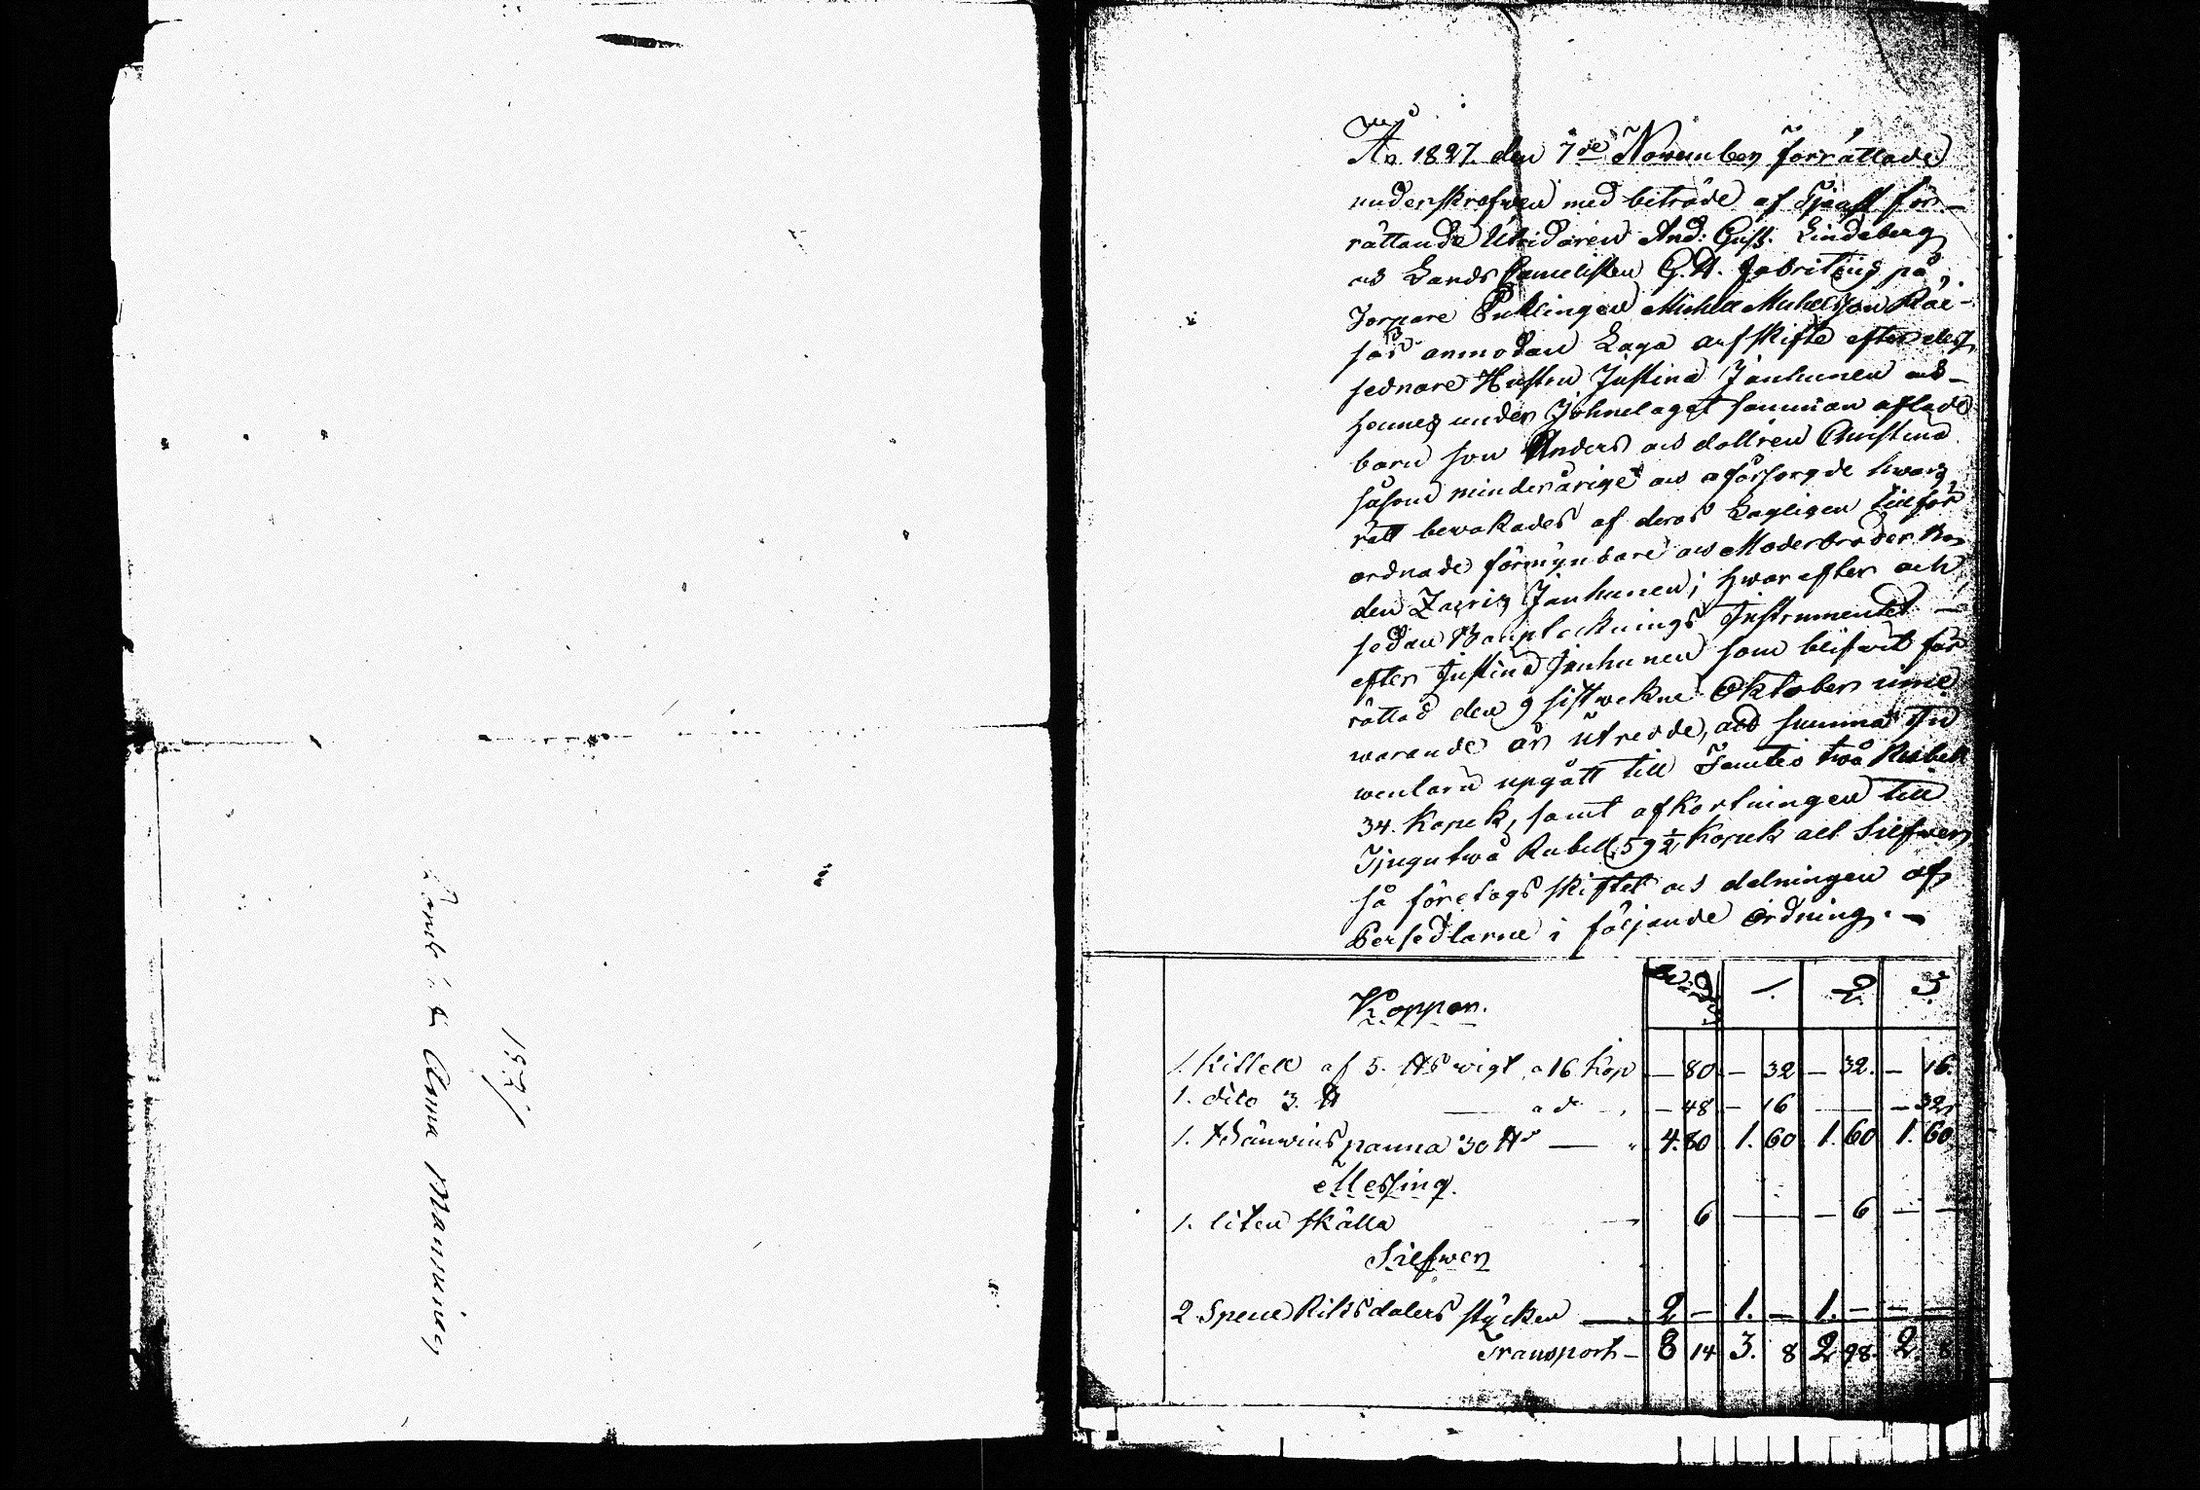 1827
Anna Manninen
År 1827 den 7de November förrättade
underskrefwen med biträde af Tjenst för-
rättande Uhridaren And: Gust: Lindeberg
och Lands Cancelisten G. A. Fabritius på
Torpare Enklingen Michel Michelsson Räi-
säs anmodan Laga arfskifte efter dess
sednare Hustru Justina Janhunen och
hennes under Johnelaget samman aflade
barn son Anders och dottren Christina
såsom minderårige och oförsorgde hwars
rätt bewakades af deras Lagligen tillför
ordnade förmyndare och Moderbroder Bon
den Zacris Janhunen; hwarefter och
sedan Bouptecknings Instrumentet
efter Justina Janhunen som blifwit för
rättad den 9 sistwekne Oktober inne
warande år utredde, att summan In
wentarii upgått till Femtio twå Rubell
34. Kopek, samt afkortningen till
Tjugutwå Rubell 59 1/2 Kopek allt Silfwer
så företogs skiftet och delningen af
Persedlarne i följande ordning. -
Koppar. Wärde 1. 2. 3.
1. Kittell af 5. ℔s wigt a 16 Kop — 80 — 32 — 32. — 16.
1. dito 3. ℔ — a do — 48 — 16 — — — 32
1. Bränwins panna 30 ℔s — 4. 80 1. 60 1. 60 1. 60
Messing.
1. liten skålla 6 — — — 6 — —
Silfwer
2 Specie Riksdalers stycken — 2 — 1. — 1. — — —
Transport — 8 14 3. 8 2 98. 2 8